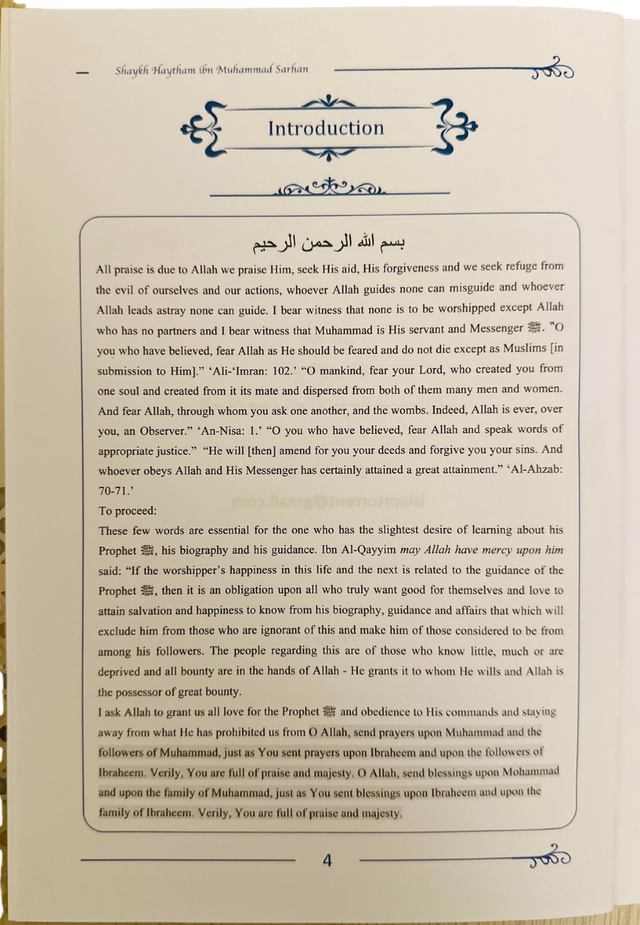 Shaykh Haytham ibn Muhammad Sarhan
Introduction
بسم الله الرحمن الرحيم
All praise is due to Allah we praise Him, seek His aid, His forgiveness and we seek refuge from
the evil of ourselves and our actions, whoever Allah guides none can misguide and whoever
Allah leads astray none can guide. I bear witness that none is to be worshipped except Allah
who has no partners and I bear witness that Muhammad is His servant and Messenger ﷺ. "O
you who have believed, fear Allah as He should be feared and do not die except as Muslims [in
submission to Him].” ‘Ali-‘Imran: 102.’ “O mankind, fear your Lord, who created you from
one soul and created from it its mate and dispersed from both of them many men and women.
And fear Allah, through whom you ask one another, and the wombs. Indeed, Allah is ever, over
you, an Observer.” ‘An-Nisa: 1.’ “O you who have believed, fear Allah and speak words of
appropriate justice.” “He will [then] amend for you your deeds and forgive you your sins. And
whoever obeys Allah and His Messenger has certainly attained a great attainment.” ‘Al-Ahzab:
70-71.’
islamtorrent@gmail.com
To proceed:
These few words are essential for the one who has the slightest desire of learning about his
Prophet ﷺ, his biography and his guidance. Ibn Al-Qayyim may Allah have mercy upon him
said: “If the worshipper’s happiness in this life and the next is related to the guidance of the
Prophet ﷺ, then it is an obligation upon all who truly want good for themselves and love to
attain salvation and happiness to know from his biography, guidance and affairs that which will
exclude him from those who are ignorant of this and make him of those considered to be from
among his followers. The people regarding this are of those who know little, much or are
deprived and all bounty are in the hands of Allah - He grants it to whom He wills and Allah is
the possessor of great bounty.
I ask Allah to grant us all love for the Prophet ﷺ and obedience to His commands and staying
away from what He has prohibited us from O Allah, send prayers upon Muhammad and the
followers of Muhammad, just as You sent prayers upon Ibraheem and upon the followers of
Ibraheem. Verily, You are full of praise and majesty. O Allah, send blessings upon Mohammad
and upon the family of Muhammad, just as You sent blessings upon Ibraheem and upon the
family of Ibraheem. Verily, You are full of praise and majesty.
4